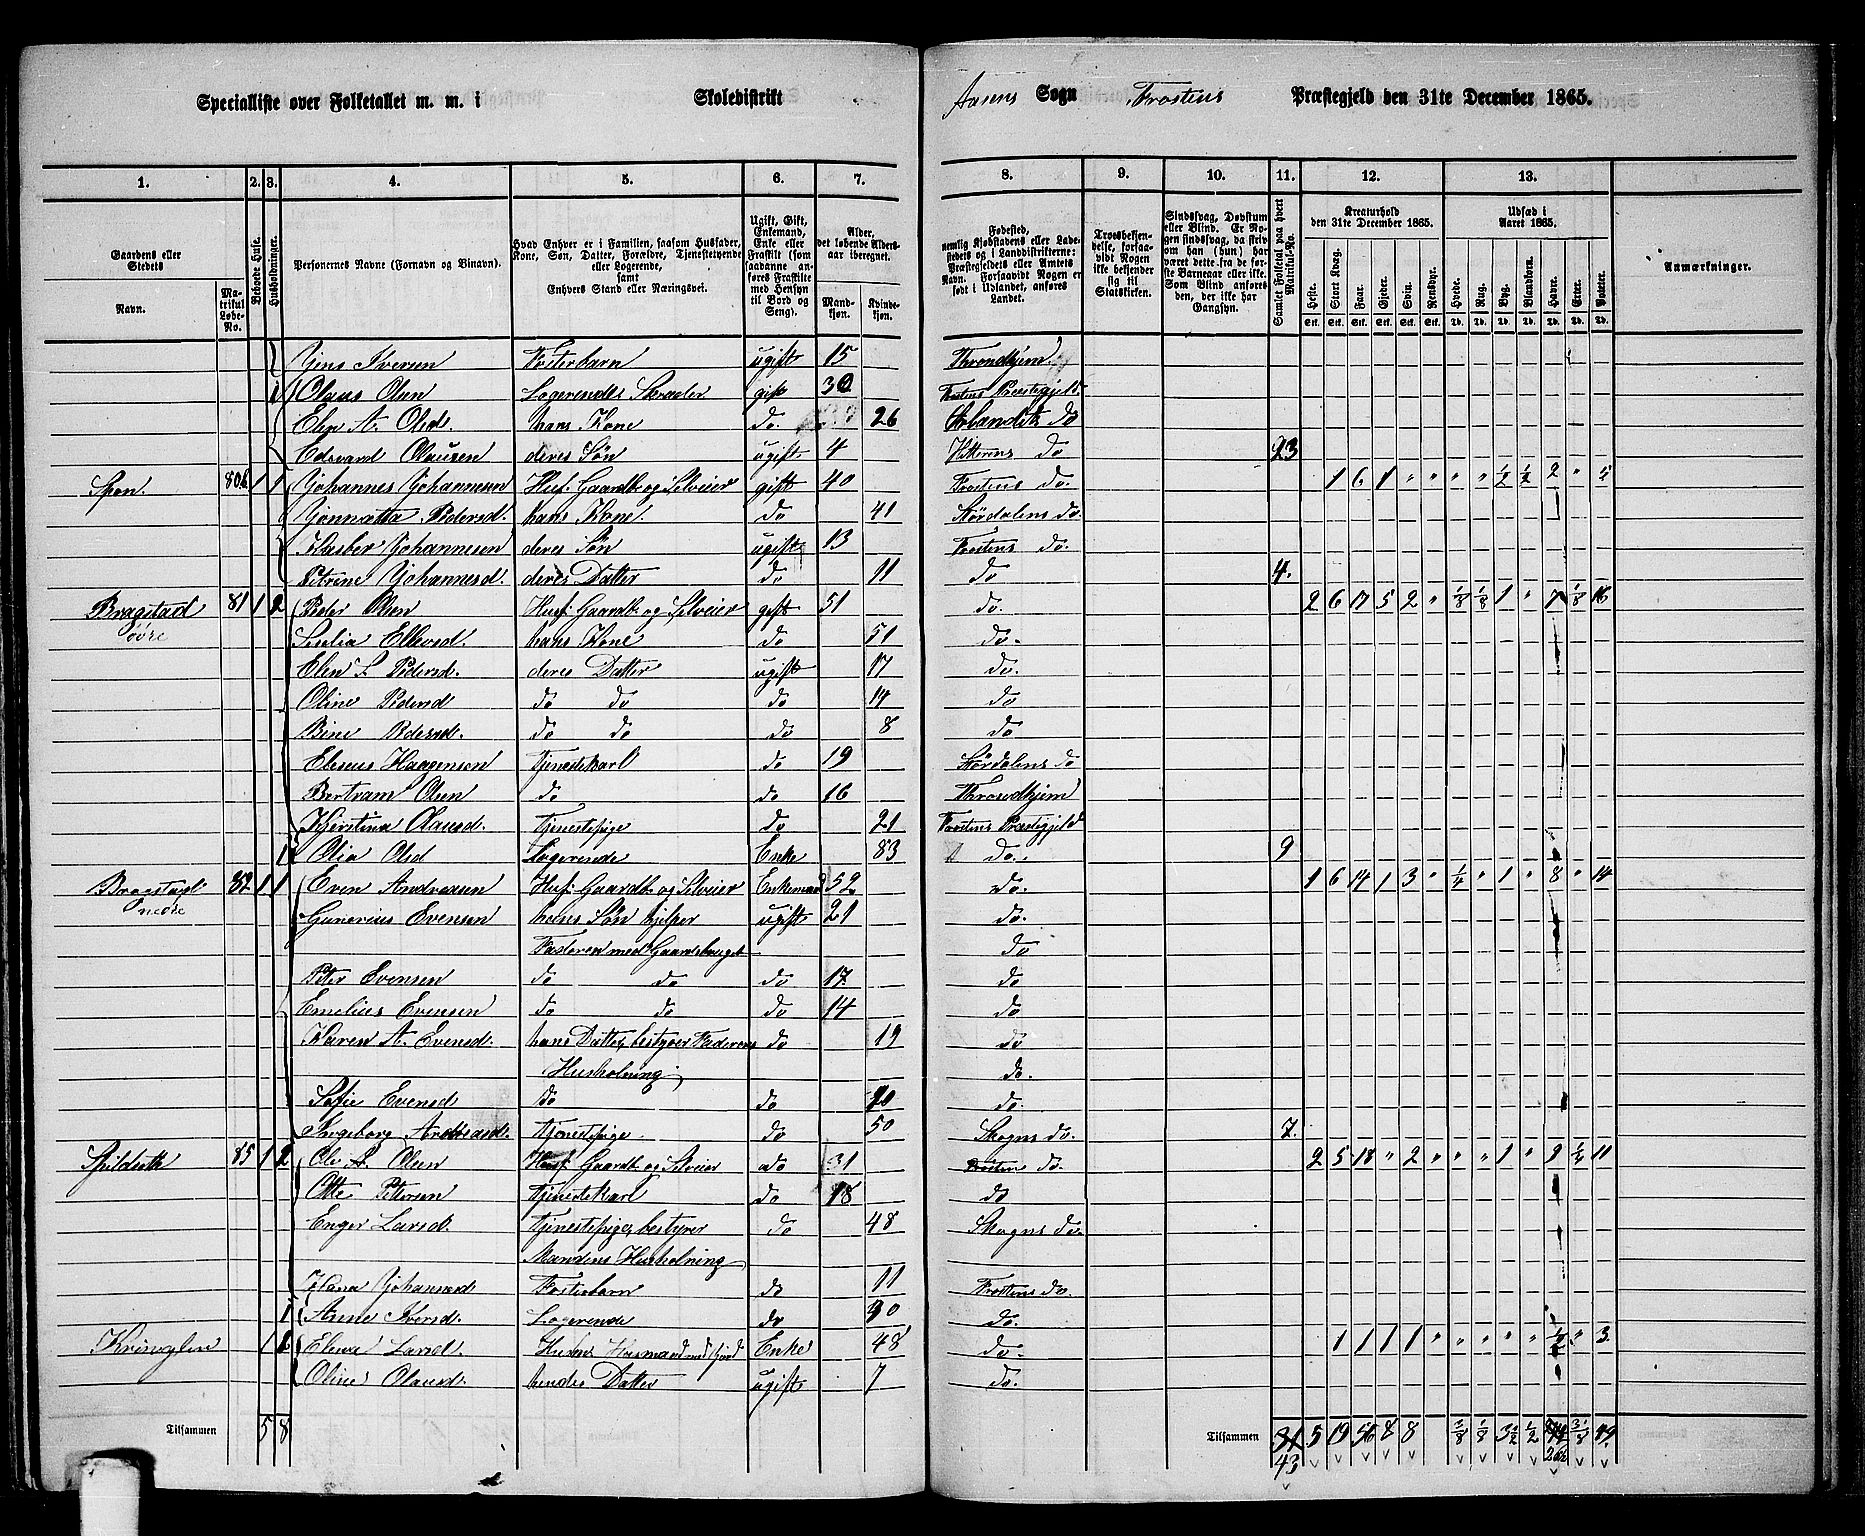 Specialliste over Folketallet m. m. i Skoledistrikt Aasens Sogn Frostens Præstegjeld den 31te December 1865.
1. 2. 3. 4. 5. 6. 7. 8. 9. 10. 11. 12. 13.
Gaardens eller Stedets Navn. Matrikul Løbe-No. Beboede Huse. Husholdninger. Personernes Navne (Fornavn og Binavn).
Hvad Enhver er i Familien, saasom Husfader, Kone, Søn, Datter, Forældre, Tjenestetyende eller Logerende, samt Enhvers Stand eller Næringsvei.
Ugift, Gift, Enkemand, Enke eller Fraskilt (som saadanne anføres Fraskilte med Hensyn til Bord og Seng).
Alder, det løbende Aldersaar iberegnet. Mandkjøn. Kvindekjøn.
Fødested, nemlig Kjøbstadens eller Ladestedets og i Landdistrikterne: Præstegjeldets eller Amtets Navn. Forsaavidt Nogen er født i Udlandet, anføres Landet.
Trosbekjendelse, forsaavidt Nogen ikke bekjender sig til Statskirken.
Sindssvag, Døvstum eller Blind. Er Nogen sindssvag, da skrives om han (hun) har været dette fra de første Barneaar eller ikke. Som Blind anføres den, der ikke har Gangsyn.
Samlet Folketal paa hvert Matrikul-No.
Kreaturhold den 31te December 1865. Heste. Stort Kvæg. Faar. Gjeder. Svin. Rensdyr.
Udsæd i Aaret 1865. Hvede. Rug. Byg. Blandkorn. Havre. Erter. Poteter.
Anmærkninger.
Stk. Stk. Stk. Stk. Stk. Stk. Td. Td. Td. Td. Td. Td. Td.
Jens Iversen Fosterbarn ugift 15 Throndhjem
1 Olaus Olsen Logerende Skræder gift 30 Frostens Præstegjeld.
Elen A. Olsd. hans Kone do. 26 do
Edevard Olausen deres Søn ugift 4 Hitterens do 23
Spon. 80b 1 1 Johannes Johannesen Husf. Gaardb. og Selveier gift 40 Frostens do. 1 6 1 " " " " ½ ½ 2 " 5
Pedersd. hans Kone. do 41 Størdalens do
Kasber Johannesen deres Søn ugift 13 Frostens do.
Petrine Johannesd. deres Datter do 11 do 4.
Bragstad øvre 81 1 2 Peter Olsen Husf. Gaardb. og Selveier gift 51 do. 2 6 17 5 2 " 1/8 1/8 1 " 7 1/8 16
Ellevsd. hans Kone do 51 do.
Elen Pedersd. deres Datter ugift 17 do.
Oline Pedersd do do do 14 do
Pedersd. do do do 8 do
Eleseus Haagensen Tjenestekarl do 19 Størdalens do
Bertram Olsen do do 16 Throndhjem
Kjerstina Olausd. Tjenestepige do 21 Frostens Præstegjeld
1 Olia Olsd Logerende Enke 83 do. 9
Bragstad nedre 82 1 1 Even Andreasen Husf. Gaardb. og Selveier Enkemand 52 do. 1 6 14 1 3 " ¼ " 1 " 8 " 14
Gunerius Evensen hans Søn hjelper ugift 21 do.
Faderen med Gaardsbruget do
Peter Evensen do do do 17 do
Emelius Evensen do do do 14 do
Karen A. Evensd. hans Datter, bestyrer Faderens do 19 do
Husholning do.
Sofie Evensd do do 20 do.
Ingeborg Andreasd. Tjenestepige do 50 Skogns do. 7.
85 1 2 Ole Olsen Husf. Gaardb. og Selveier do 31 Frostens do. 2 5 18 " 2 " " " 1 " 9 ¼ 11
Otte Petersen Tjenestekarl do 18 do
Enger Larsd. Tjenestepige, bestyrer do 48 Skogns do.
Mandens Husholning
Hana Johannesd Fosterbarn do 11 Frostens do.
1 Anne Iversd. Logerende do 90 do.
1 Elena Larsd. Husmand med Jord Enke 48 do. 1 1 1 1 " " " " " ¼ " 3
Oline Olausd. hendes Datter ugift 7 do.
Tilsammen 5 8 Tilsammen 31 43 5 19 56 8 8 3/8 1/8 3½ ½ 26½ 3/8 49.